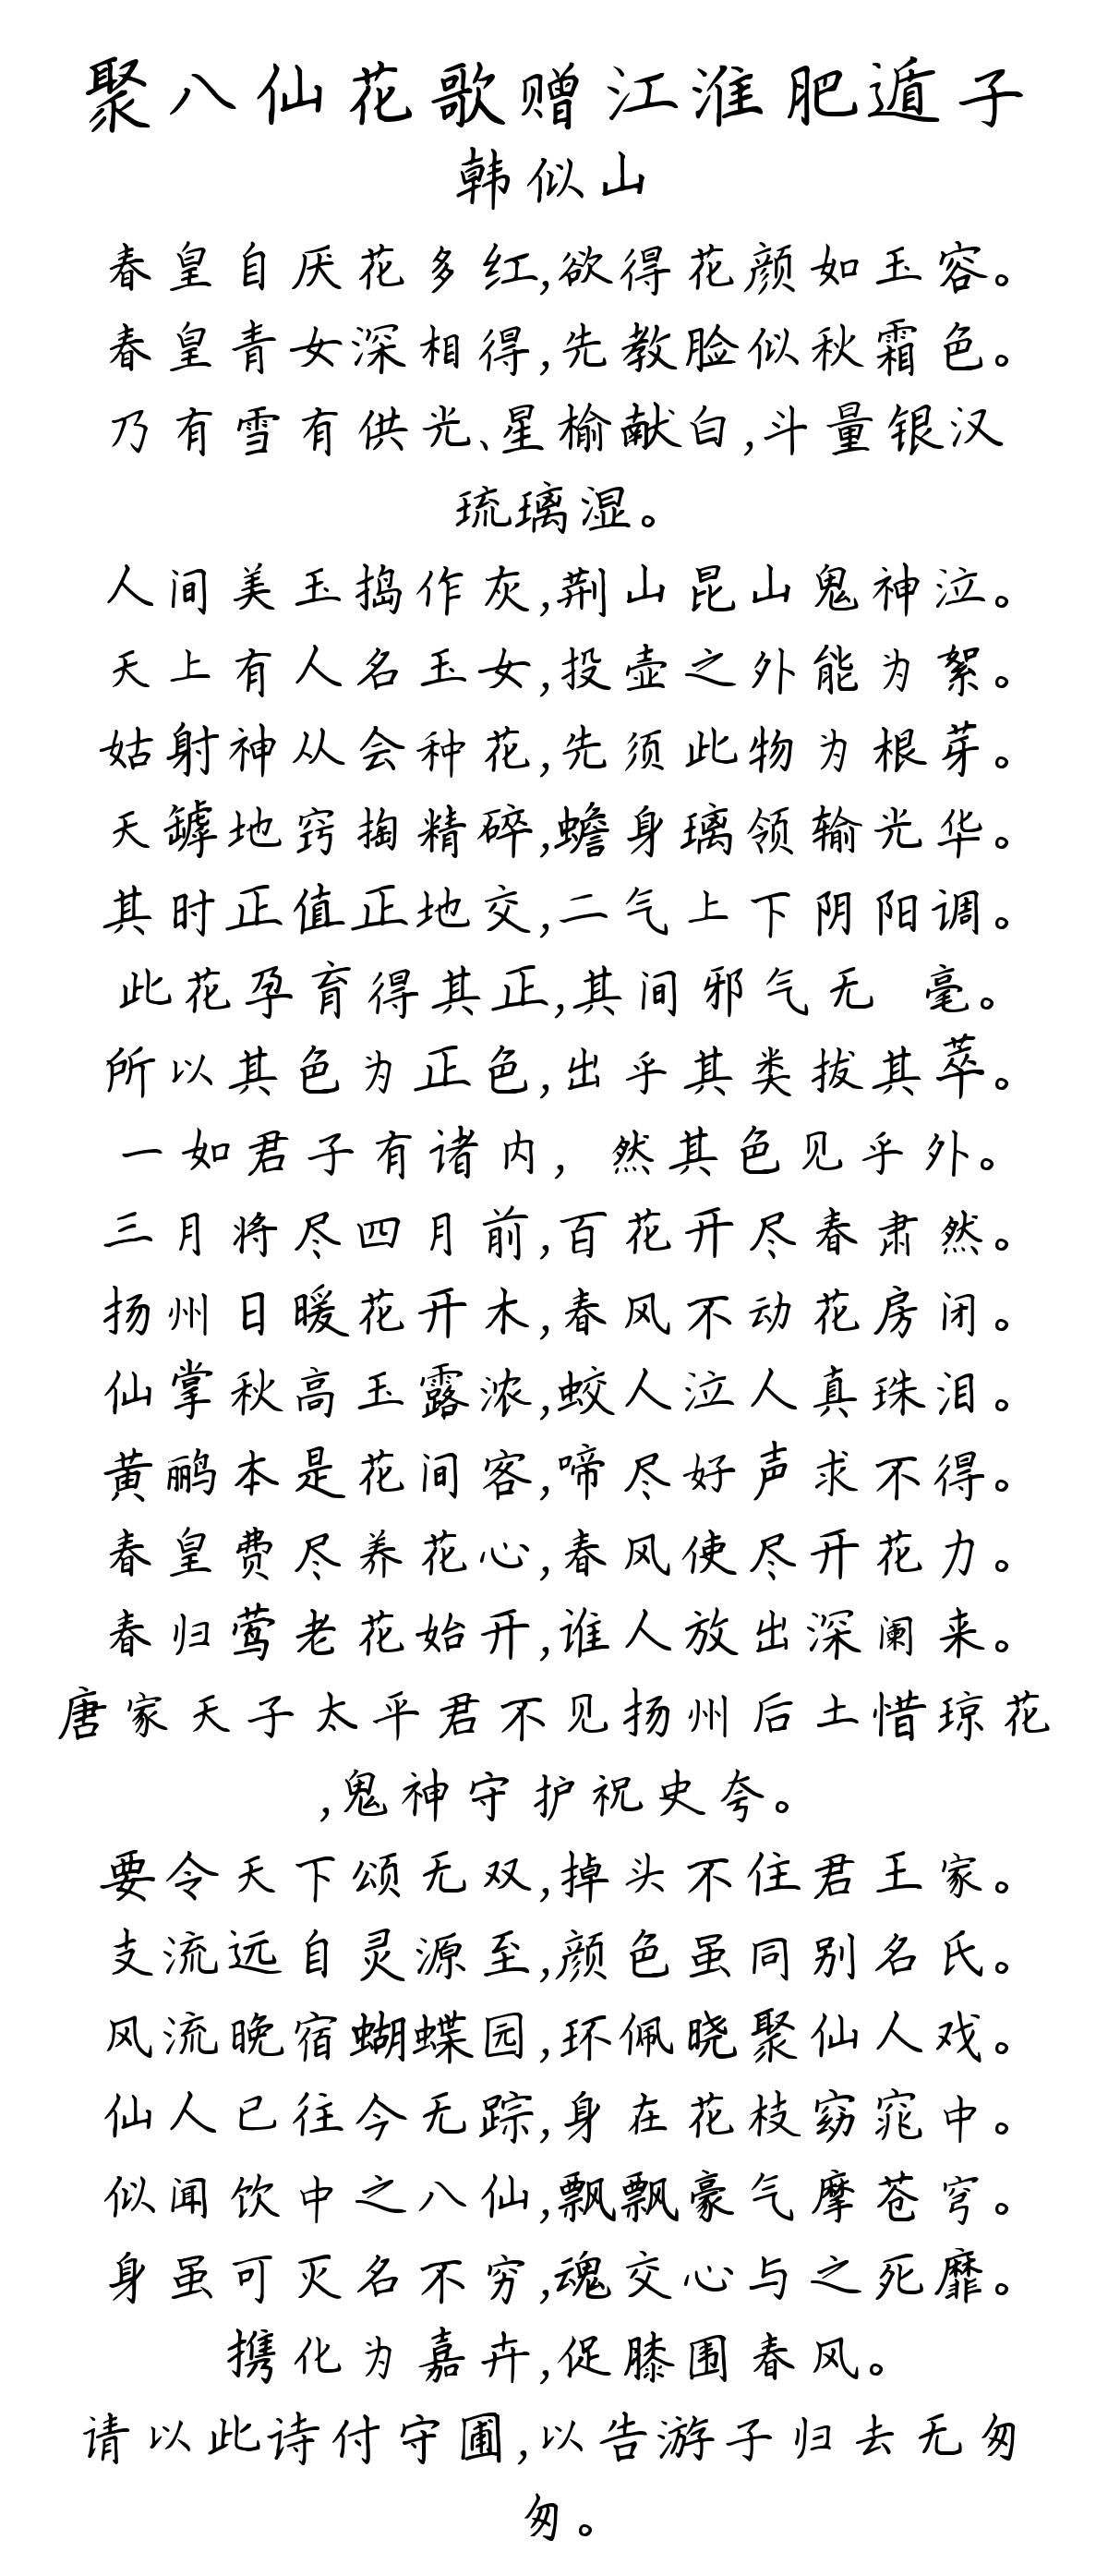 聚八仙花歌赠江淮肥遁子
韩似山
春皇自厌花多红,欲得花颜如玉容。
春皇青女深相得,先教脸似秋霜色。
乃有雪有供光、星榆献白,斗量银汉
琉璃湿。
人间美玉捣作灰,荆山昆山鬼神泣。
天上有人名玉女,投壶之外能为絮。
姑射神从会种花,先须此物为根芽。
天罅地窍掏精碎,蟾身璃领输光华。
其时正值正地交,二气上下阴阳调。
此花孕育得其正,其间邪气无 毫。
所以其色为正色,出乎其类拔其萃。
一如君子有诸内，然其色见乎外。
三月将尽四月前,百花开尽春肃然。
扬州日暖花开木,春风不动花房闭。
仙掌秋高玉露浓,蛟人泣人真珠泪。
黄鹂本是花间客,啼尽好声求不得。
春皇费尽养花心,春风使尽开花力。
春归莺老花始开,谁人放出深阑来。
唐家天子太平君不见扬州后土惜琼花
,鬼神守护祝史夸。
要令天下颂无双,掉头不住君王家。
支流远自灵源至,颜色虽同别名氏。
风流晚宿蝴蝶园,环佩晓聚仙人戏。
仙人已往今无踪,身在花枝窈窕中。
似闻饮中之八仙,飘飘豪气摩苍穹。
身虽可灭名不穷,魂交心与之死靡。
携化为嘉卉,促膝围春风。
请以此诗付守圃,以告游子归去无匆
匆。